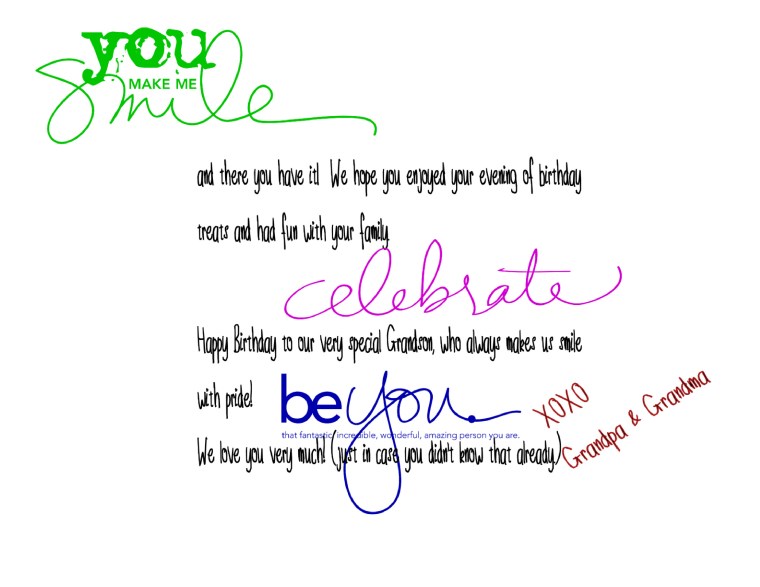 you
MAKE ME
smile
and there you have it! We hope you enjoyed your evening of birthday
treats and had fun with your family.
celebrate
Happy Birthday to our very special Grandson, who always makes us smile
with pride!
be you.
that fantastic, incredible, wonderful, amazing person you are.
XOXO
Grandpa & Grandma
We love you very much! (just in case you didn't know that already)